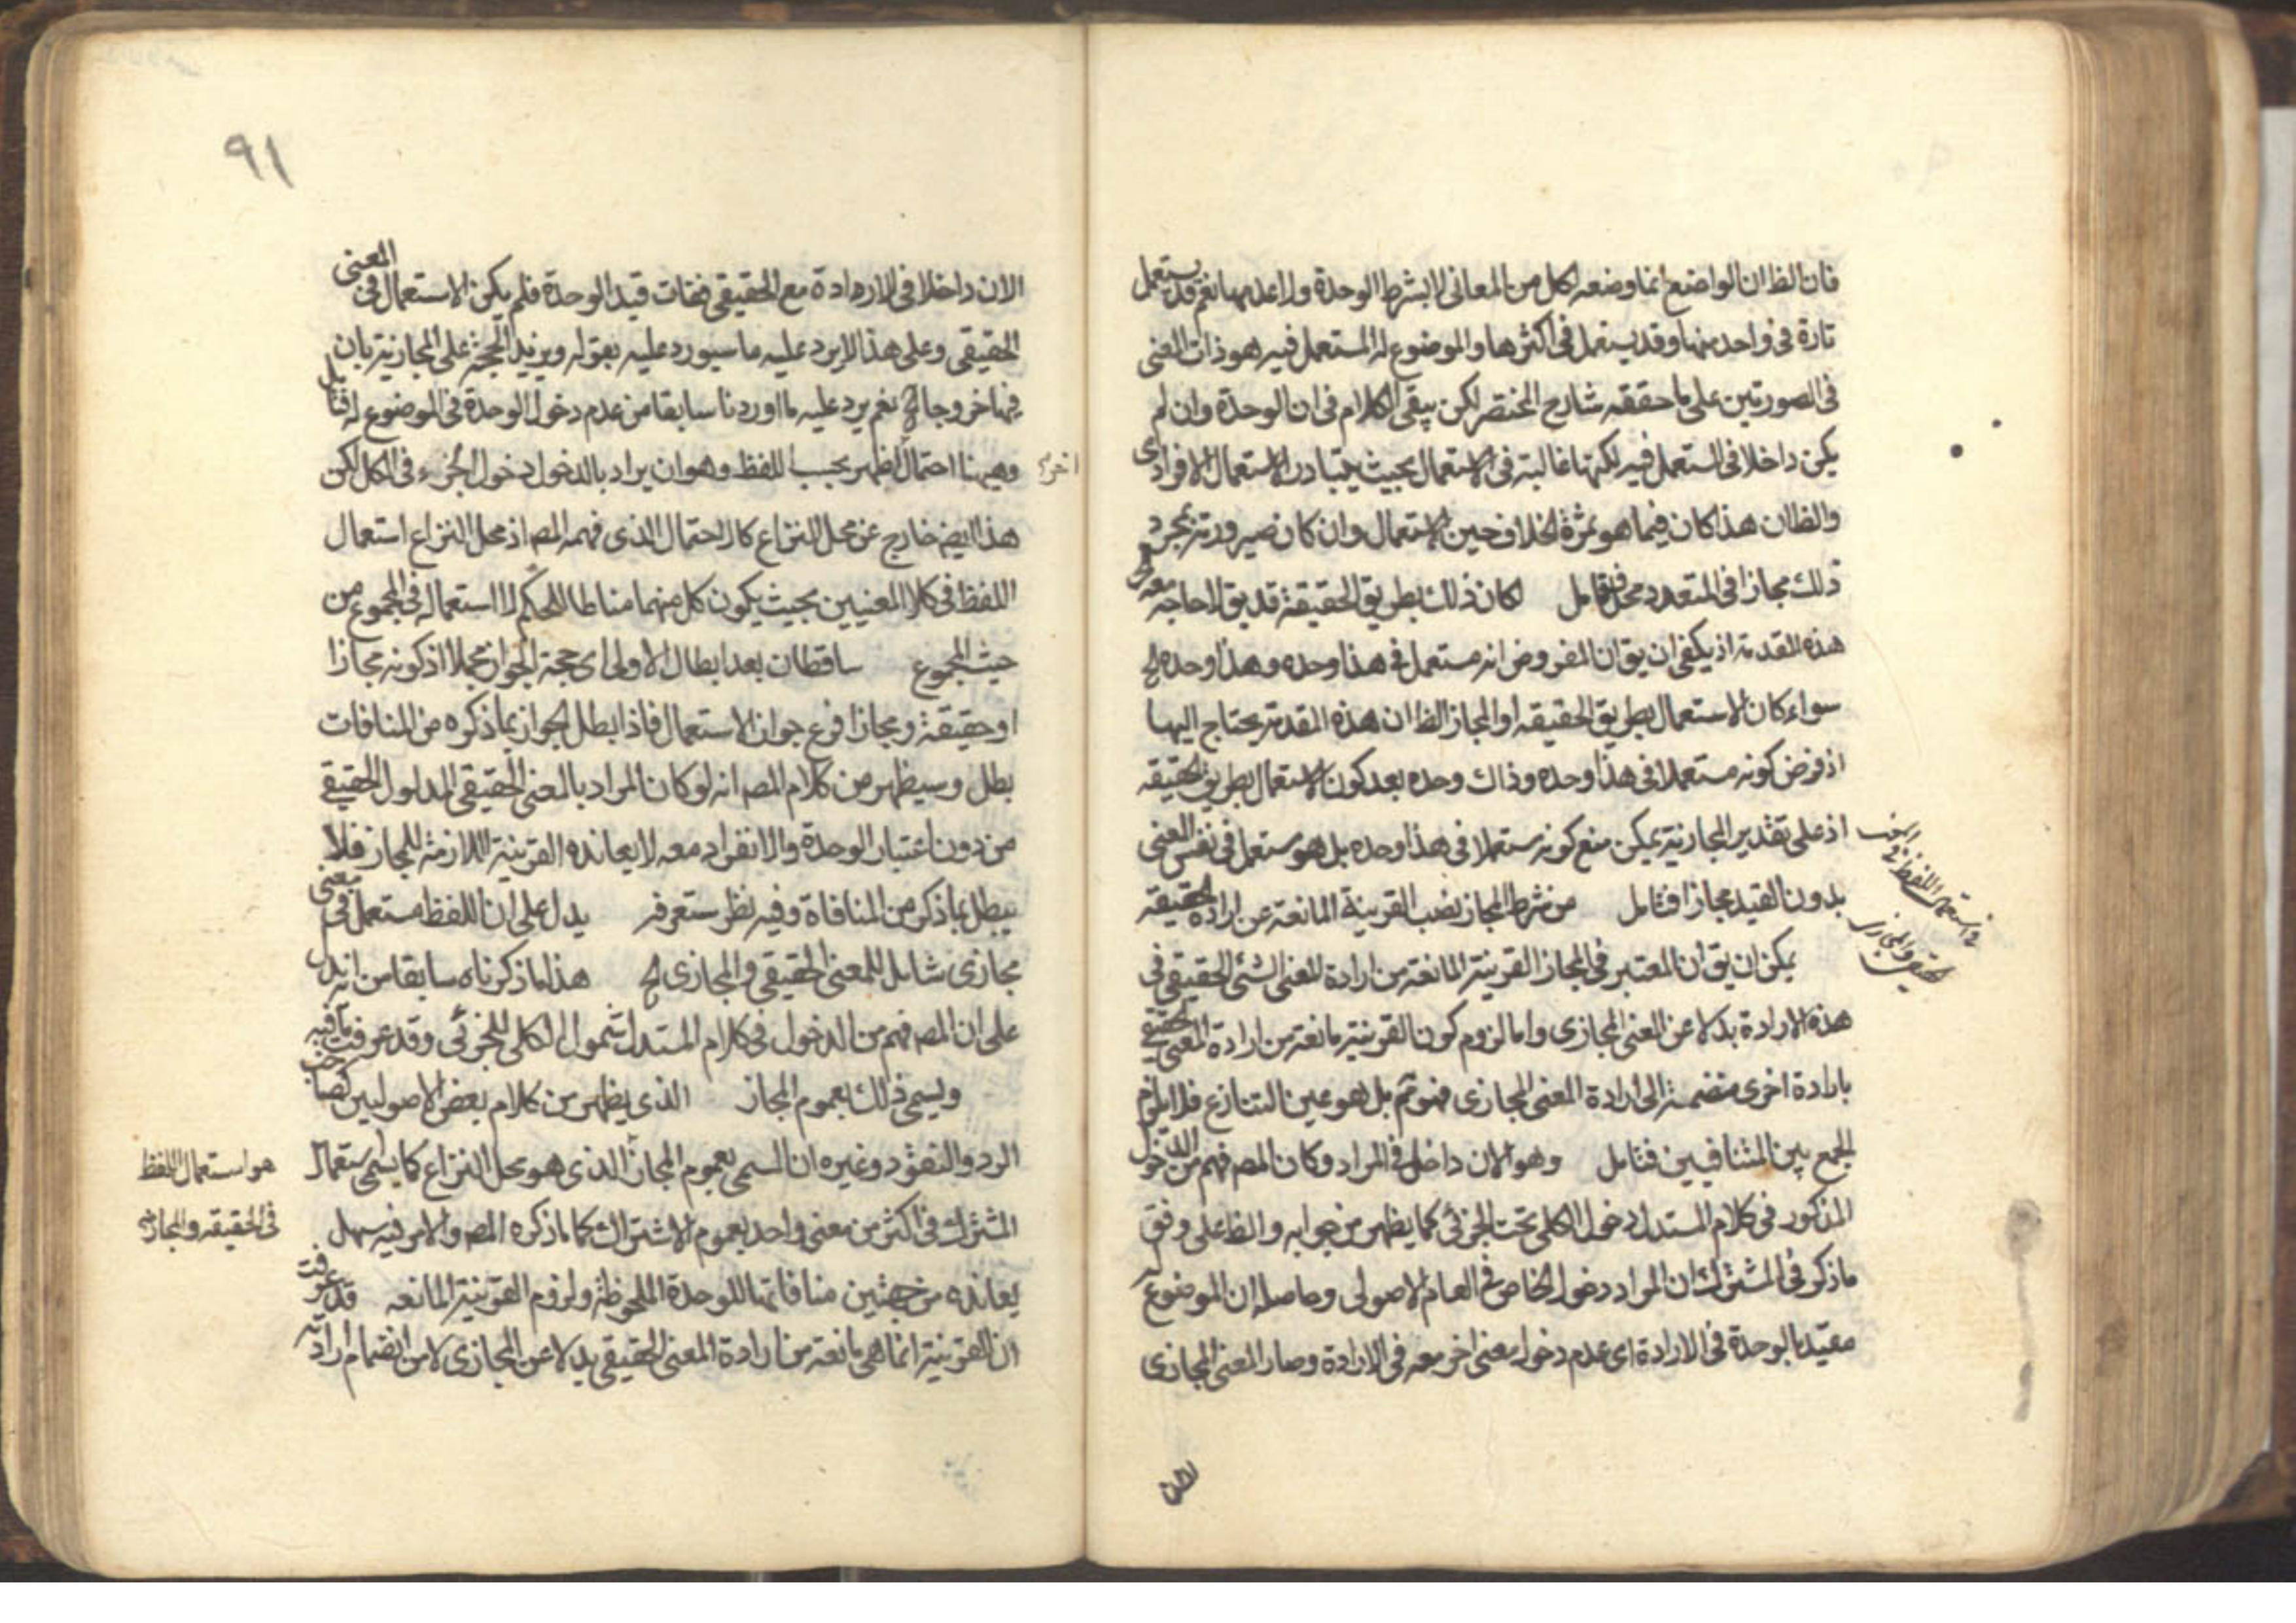 فان الظ ان الواضع انما وضعه لكل من المعانى لا بشرط الوحدة ولا عدمها نعم قد يستعمل
تارة فى واحد منها وقد يستعمل فى اكثرها والموضوع له المستعمل فيه هو ذات المعنى
فى الصورتين على ما حققه شارح المختصر لكن يبقى الكلام فى ان الوحدة وان لم
يكن داخلا فى المستعمل فيه لكنها غالبة فى الاستعمال بحيث يتبادر الاستعمال الافرادى
والظ ان هذا كان فيما هو ثمرة الخلاف حين الاستعمال وان كان صيرورته بمجرد
ذلك مجازا فى المتعدد محل تامل لكان ذلك بطريق الحقيقة قد يق لا حاجة معه الى
هذه المقدمة اذ يكفى ان يق ان المفروض انه مستعمل فى هذا وحده وهذا وحده الخ
سواء كان الاستعمال بطريق الحقيقة او المجاز الظ ان هذه المقدمة يحتاج اليها
اذ فرض كونه مستعملا فى هذا وحده وذاك وحده بعد كون الاستعمال بطريق الحقيقة
اذ على تقدير المجازية يمكن منع كونه مستعملا فى هذا وحده بل هو مستعمل فى نفس المعنى
بدون القيد مجازا فتامل من شرط المجاز نصب القرينة المانعة عن ارادة الحقيقة
فى استعمال اللفظ فى
الحقيقى والمجازى
يمكن ان يق ان المعتبر فى المجاز القرينة المانعة من ارادة المعنى الشئ الحقيقى فى
هذه الارادة بدلا عن المعنى المجازى واما لزوم كون القرينة مانعة من ارادة المعنى الحقيقى
بارادة اخرى منضمة الى ارادة المعنى المجازى فهو ثم بل هو عين التنازع فلا يلزم
الجمع بين المتنافيين فتامل وهو الان داخل فى المراد وكان المص فهم من الدخول
المذكور فى كلام المستدل دخول الكلى تحت الجزئى كما يظهر من جوابه والظ على وفق
ما ذكر فى المشترك ان المراد دخول الخاص فى العام الاصولى وحاصله ان الموضوع له
مقيد بالوحدة فى الارادة اى عدم دخول معنى اخر معه فى الارادة وصار المعنى المجازى
الان
٩١
الان داخلا فى الارادة مع الحقيقى ففات قيد الوحدة فلم يكن الاستعمال فى المعنى
الحقيقى وعلى هذا لا يرد عليه ما سيورد عليه بقوله ويزيد الحجة على المجازية بان
فيها خروجا الخ نعم يرد عليه ما اوردنا سابقا من عدم دخول الوحدة فى الموضوع له فتامل
وهيهنا احتمال اظهر بحسب اللفظ وهو ان يراد بالدخول دخول الجزء فى الكل لكن
اخر
هذا ايض خارج عن محل النزاع كالاحتمال الذى فهمه المص اذ محل النزاع استعمال
اللفظ فى كلا المعنيين بحيث يكون كل منهما مناطا للحكم لا استعماله فى المجموع من
حيث المجموع ساقطان بعد ابطال الاولى اى حجة الجواز مجملا اذ كونه مجازا
او حقيقة ومجازا فرع جواز الاستعمال فاذا بطل الجواز بما ذكره من المنافات
بطل وسيظهر من كلام المص انه لو كان المراد بالمعنى الحقيقى المدلول الحقيقى
من دون اعتبار الوحدة والانفراد معه لا يعانده القرينة اللازمة للمجاز فلا
يبطل بما ذكر من المنافاة وفيه نظر ستعرفه يدل على ان اللفظ مستعمل فى معنى
مجازى شامل للمعنى الحقيقى والمجازى الخ هذا ما ذكرناه سابقا من انه يدل
على ان المص فهم من الدخول فى كلام المستدل شمول الكلى للجزئى وقد عرفت ما فيه
ويسمى ذلك بعموم المجاز الذى يظهر من كلام بعض الاصوليين كصاحب
الردود والنقود وغيره ان المسمى بعموم المجاز الذى هو محل النزاع كما يسمى استعمال
هو استعمال اللفظ
فى الحقيقة والمجاز
المشترك فى اكثر من معنى واحد بعموم الاشتراك كما ما ذكره المص والامر فيه سهل
يعانده من جهتين منافاتها للوحدة الملحوظة ولزوم القرينة المانعة قد عرفت
ان القرينة انما هى مانعة من ارادة المعنى الحقيقى بدلا عن المجازى لا من انضمام ارادته